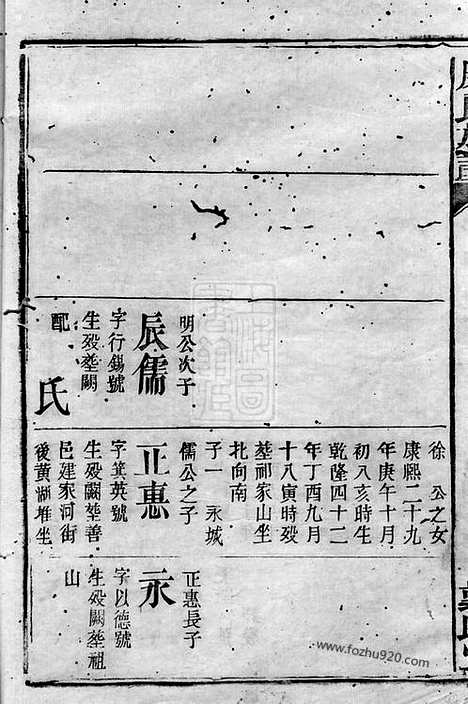 明公次子
辰儒
字行錫號
生殁塟闕
配　氏
徐　公之女
康熙二十九
年庚午十月
初八亥時生
乾隆四十二
年丁酉九月
十八寅時殁
墓祁家山坐
北向南
子一　永城
儒公之子
正惠
字箕英號
生殁闕塟善
邑建家河街
後黄湖堆坐
正惠長子
永
字以德號
生殁闕塟祖
山
www.fozhu920.com